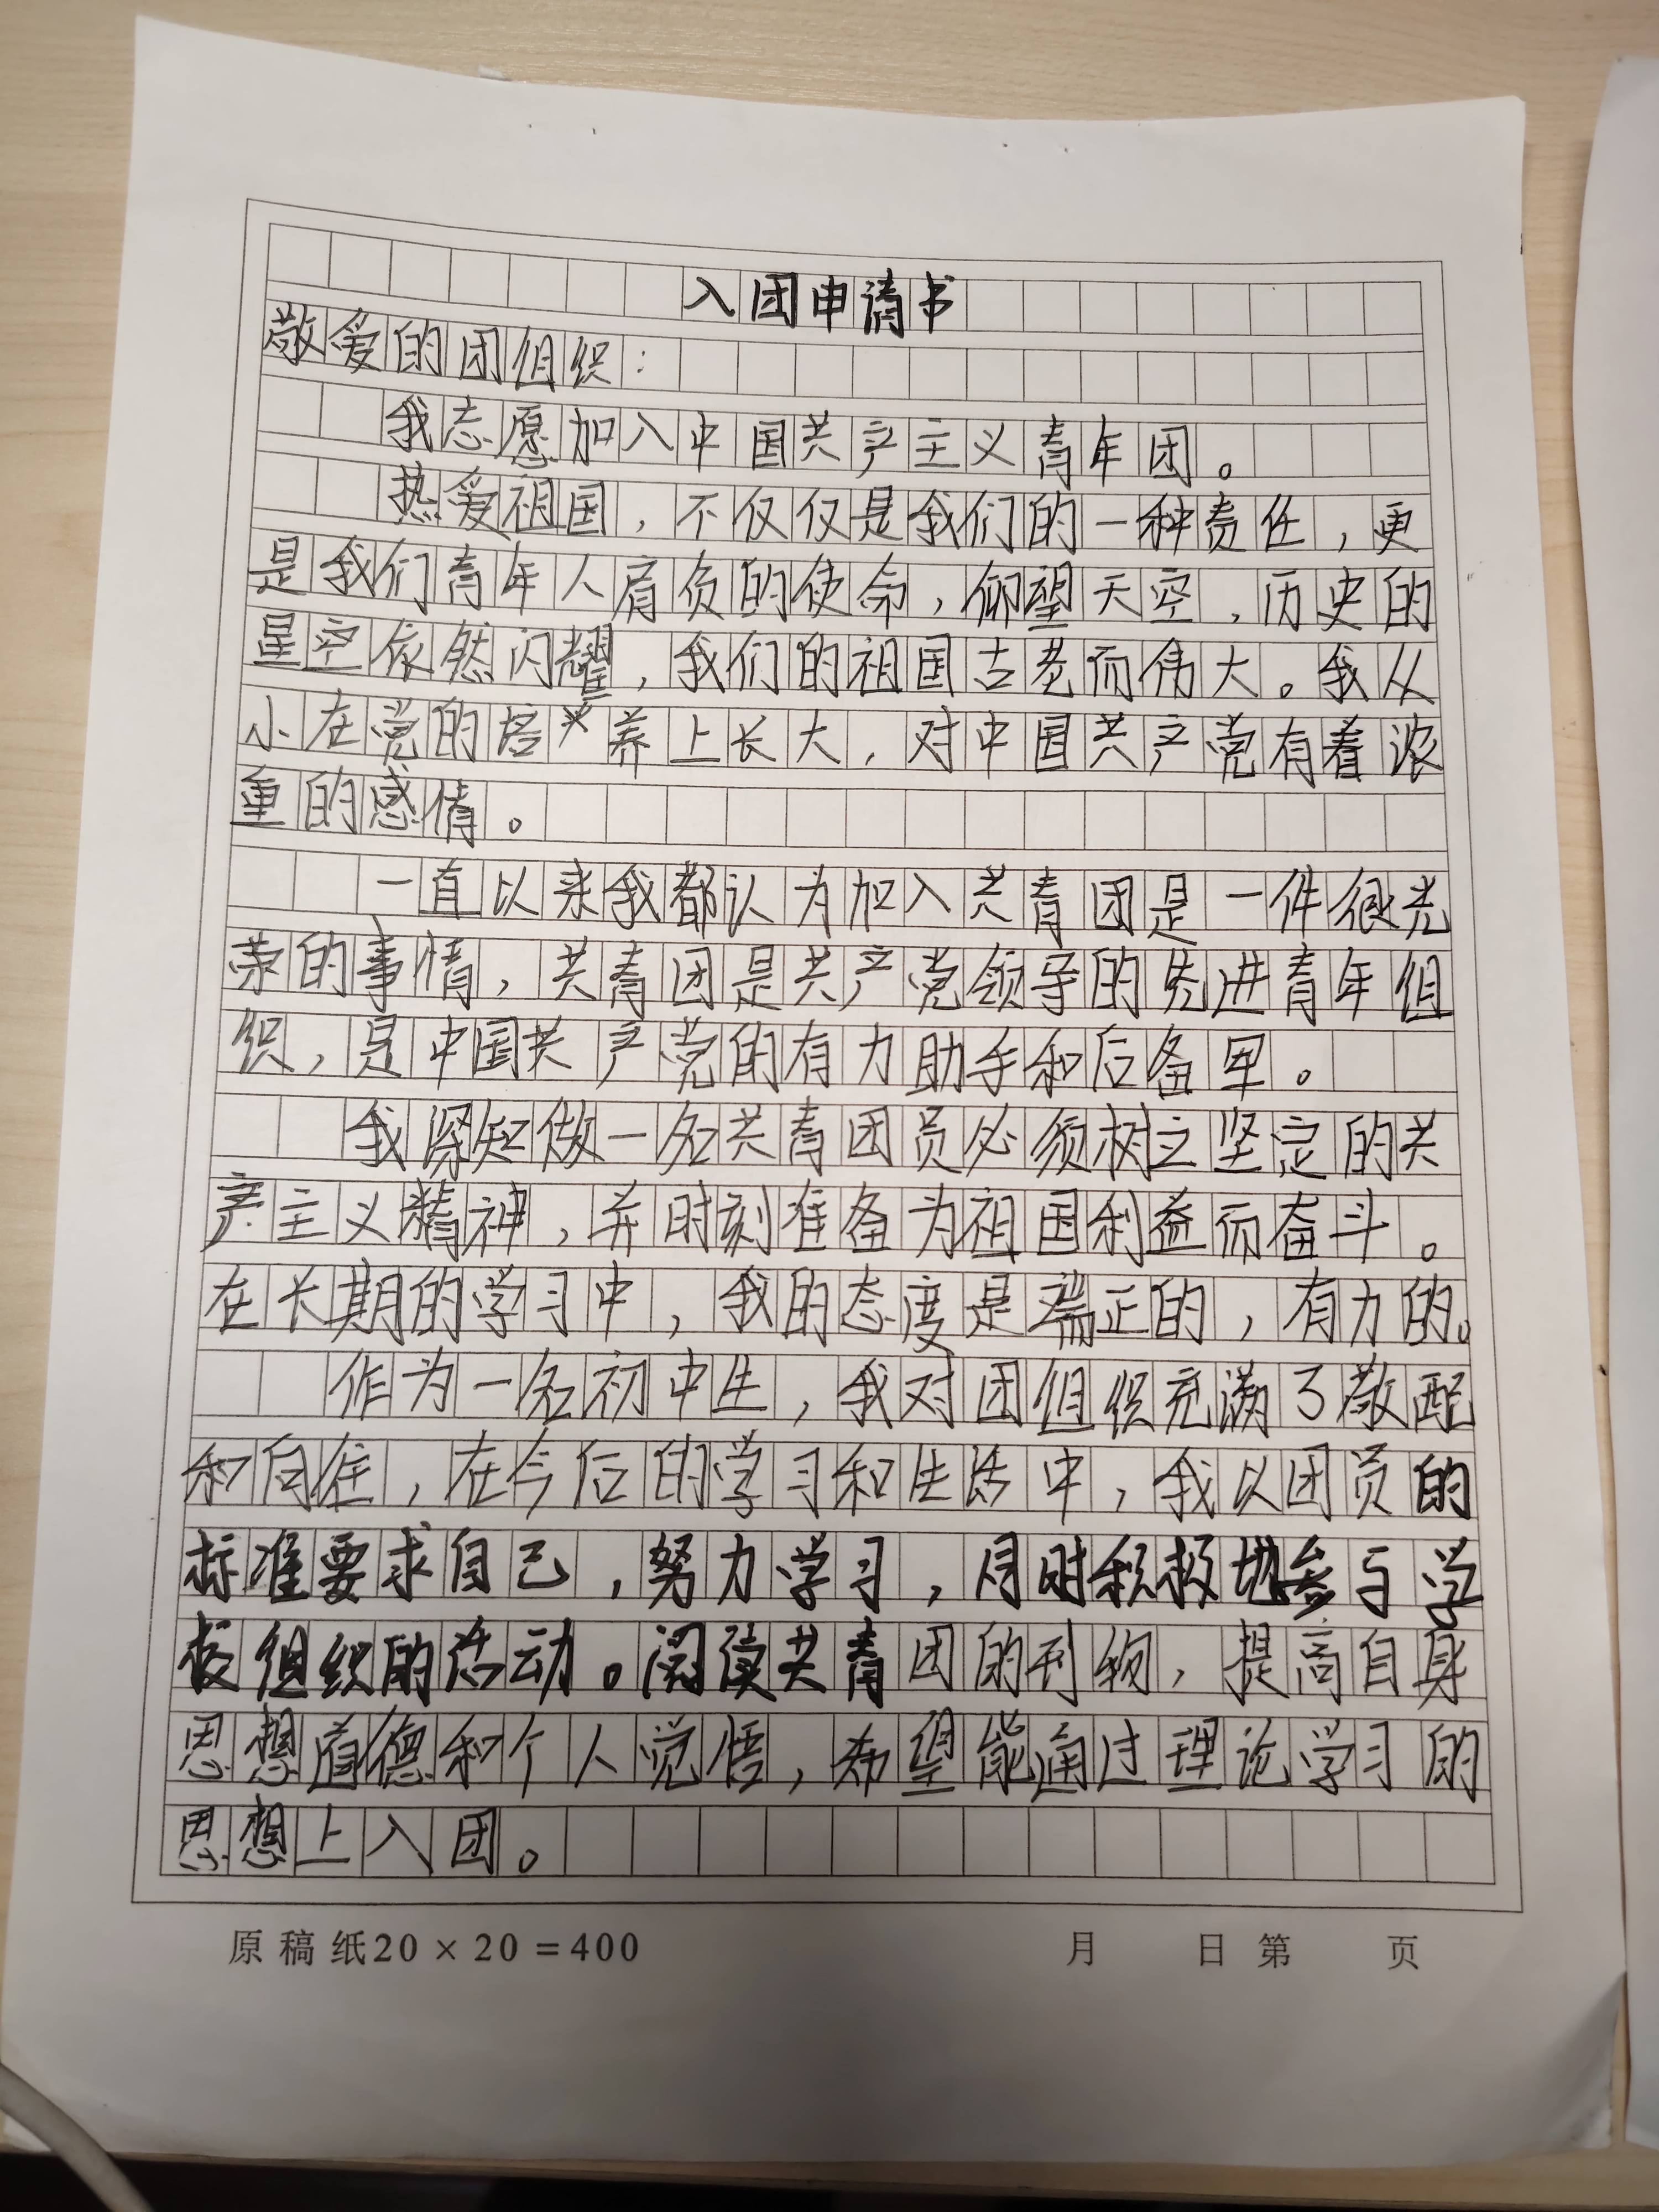 入团申请书
敬爱的团组织:
我志愿加入中国共产主义青年团。
热爱祖国,不仅仅是我们的一种责任,更
是我们青年人肩负的使命,仰望天空,历史的
星空依然闪耀,我们的祖国古老而伟大。我从
小在党的培养上长大,对中国共产党有着浓
重的感情。
一直以来我都认为加入共青团是一件很光
荣的事情,共青团是共产党领导的先进青年组
织,是中国共产党的有力助手和后备军。
我深知做一名共青团员必须树立坚定的共
产主义精神,并时刻准备为祖国利益而奋斗。
在长期的学习中,我的态度是端正的,有力的。
作为一名初中生,我对团组织充满了敬配
和向往,在今后的学习和生活中,我以团员的
标准要求自己,努力学习,同时积极地参与学
校组织的活动。阅读共青团的刊物,提高自身
思想道德和个人觉悟,希望能通过理论学习的
思想上入团。
原稿纸20×20=400 月 日 第 页